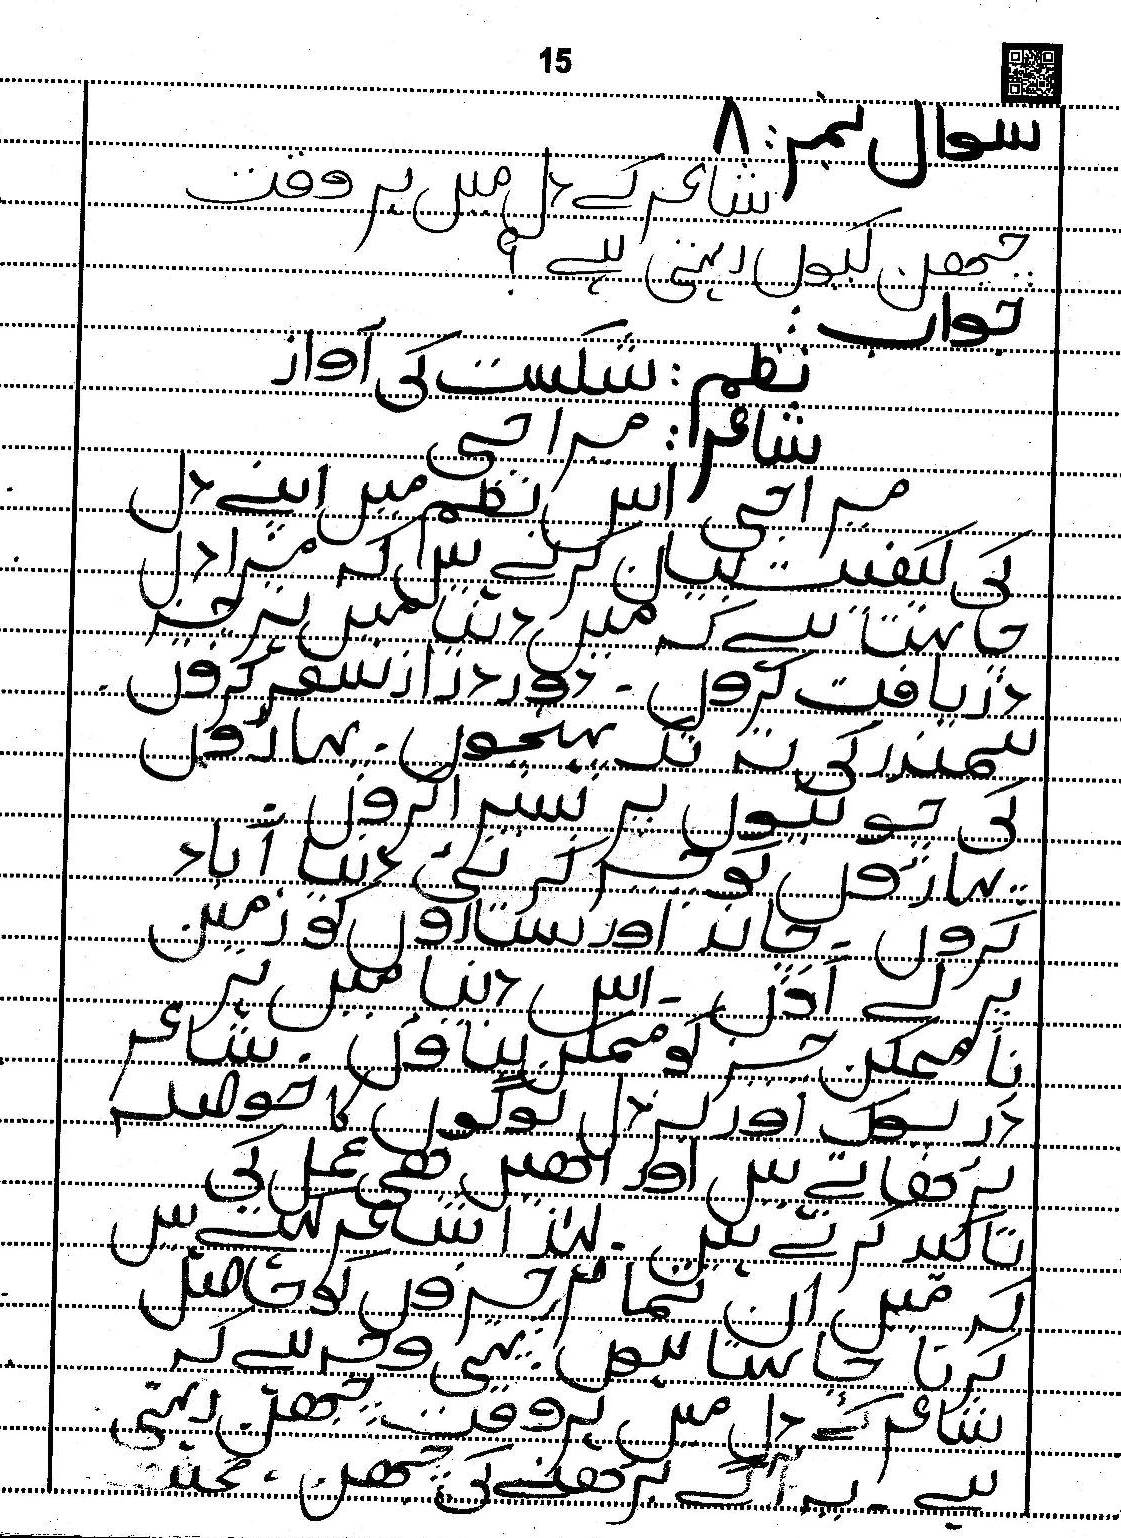 15
سوال نمبر: ۸
شاعر کے دل میں ہر وقت
چبھن کیوں رہتی ہے ؟
جواب :
نظم : شکست کی آواز
شاعر : میرا جی
میرا جی اس نظم میں اپنے دل
کی کیفیت بیان کرتے ہیں کہ میرا دل
چاہتا ہے کہ میں دنیا میں ہر چیز
دریافت کروں ۔ دور دراز سفر کروں ۔
سمندر کی تہہ تک پہنچوں ۔ پہاڑوں
کی چوٹیوں پر بسیرا کروں ۔
پہاڑوں کو چیر کر نئی دنیا آباد
کروں ۔ چاند اور ستاروں کو زمین
پر لے آؤں ۔ اس دنیا میں ہر
نا ممکن چیز کو ممکن بناؤں ۔ شاعر
ڈرپوک اور بزدل لوگوں کا حوصلہ
بڑھاتے ہیں اور انھیں بھی عمل کی
تاکید کرتے ہیں ۔ لہٰذا شاعر کہتے ہیں
کہ میں ان تمام چیزوں کو حاصل
کرنا چاہتا ہوں ۔ یہی وجہ ہے کہ
شاعر کے دل میں ہر وقت چبھن رہتی
ہے ۔ یہ آگے بڑھنے کی چبھن ، محنت